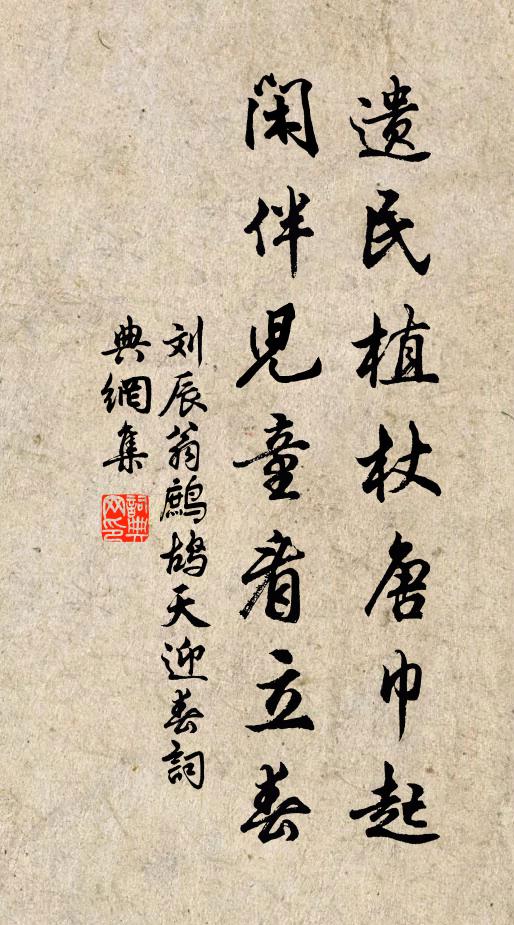 遗民植杖唐巾起
闲伴児童看立春
刘辰翁鹧鸪天迎春詞
典網集
詞典網印